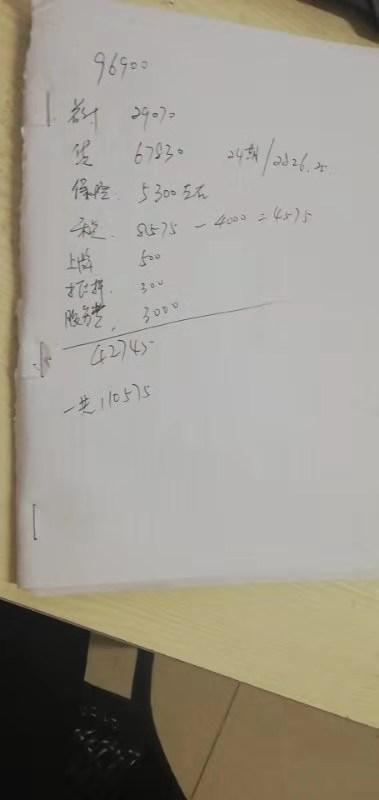 96900
首付 29070
贷 67830 24期/2826.25
保险 5300左右
税 8575 - 4000 = 4575
上牌 500
抵押 300
服务费 3000
42745
一共 110575